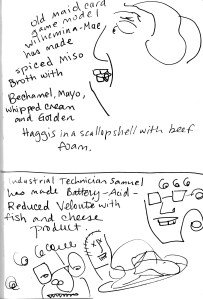 old maid card
game model
wilhemina-Mae
has made
spiced Miso
Broth with
Bechamel, Mayo,
whipped cream
and Golden
Haggis in a scallop shell with beef
foam.
Industrial Technician Samuel
has made Battery-Acid-
Reduced Veloute with
fish and cheese
product.